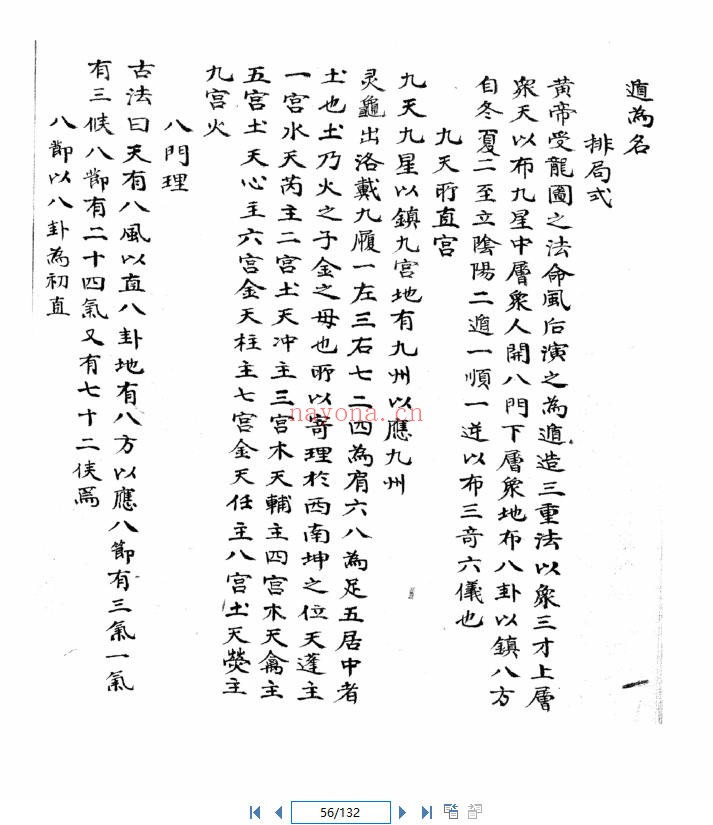 遁為名
排局式
黄帝受龍圖之法命風后演之為遁造三重法以象三才上層
象天以布九星中層象人開八門下層象地布八卦以鎮八方
自冬夏二至立陰陽二遁一順一逆以布三奇六儀也
九天所直宫
九天九星以鎮九宫地有九州以應九州
灵龜出洛戴九履一左三右七二四為肩六八為足五居中者
土也土乃火之子金之母也所以寄理於西南坤之位天蓬主
一宫水天芮主二宫土天冲主三宫木天輔主四宫木天禽主
五宫土天心主六宫金天柱主七宫金天任主八宫土天熒主
九宫火
八門理
古法曰天有八風以直八卦地有八方以應八節有三氣一氣
有三候八節有二十四氣又有七十二候焉
八節以八卦為初直
nayona.cn
56/132